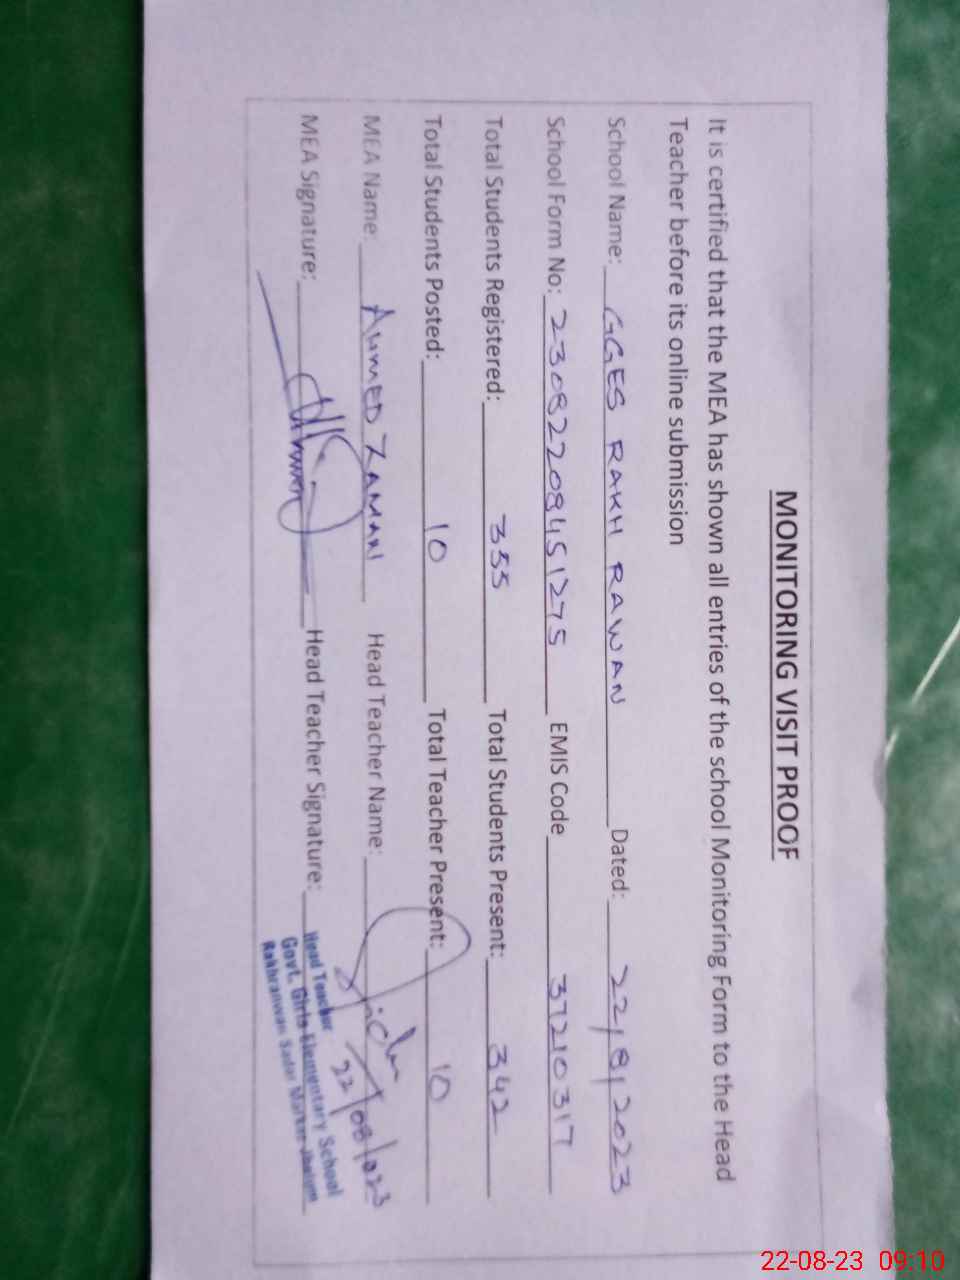 MONITORING VISIT PROOF
It is certified that the MEA has shown all entries of the school Monitoring Form to the Head
Teacher before its online submission
School Name: GGES RAKH RAWAN Dated: 22/8/2023
School Form No: 23082208451275 EMIS Code 37210317
Total Students Registered: 355 Total Students Present: 342
Total Students Posted: 10 Total Teacher Present: 10
MEA Name: AHMED ZAMAN Head Teacher Name:
MEA Signature: Head Teacher Signature:
22/08/023
Head Teacher
Govt. Girls Elementary School
Rakhranwan Sadar Markaz Jhelum
22-08-23 09:10